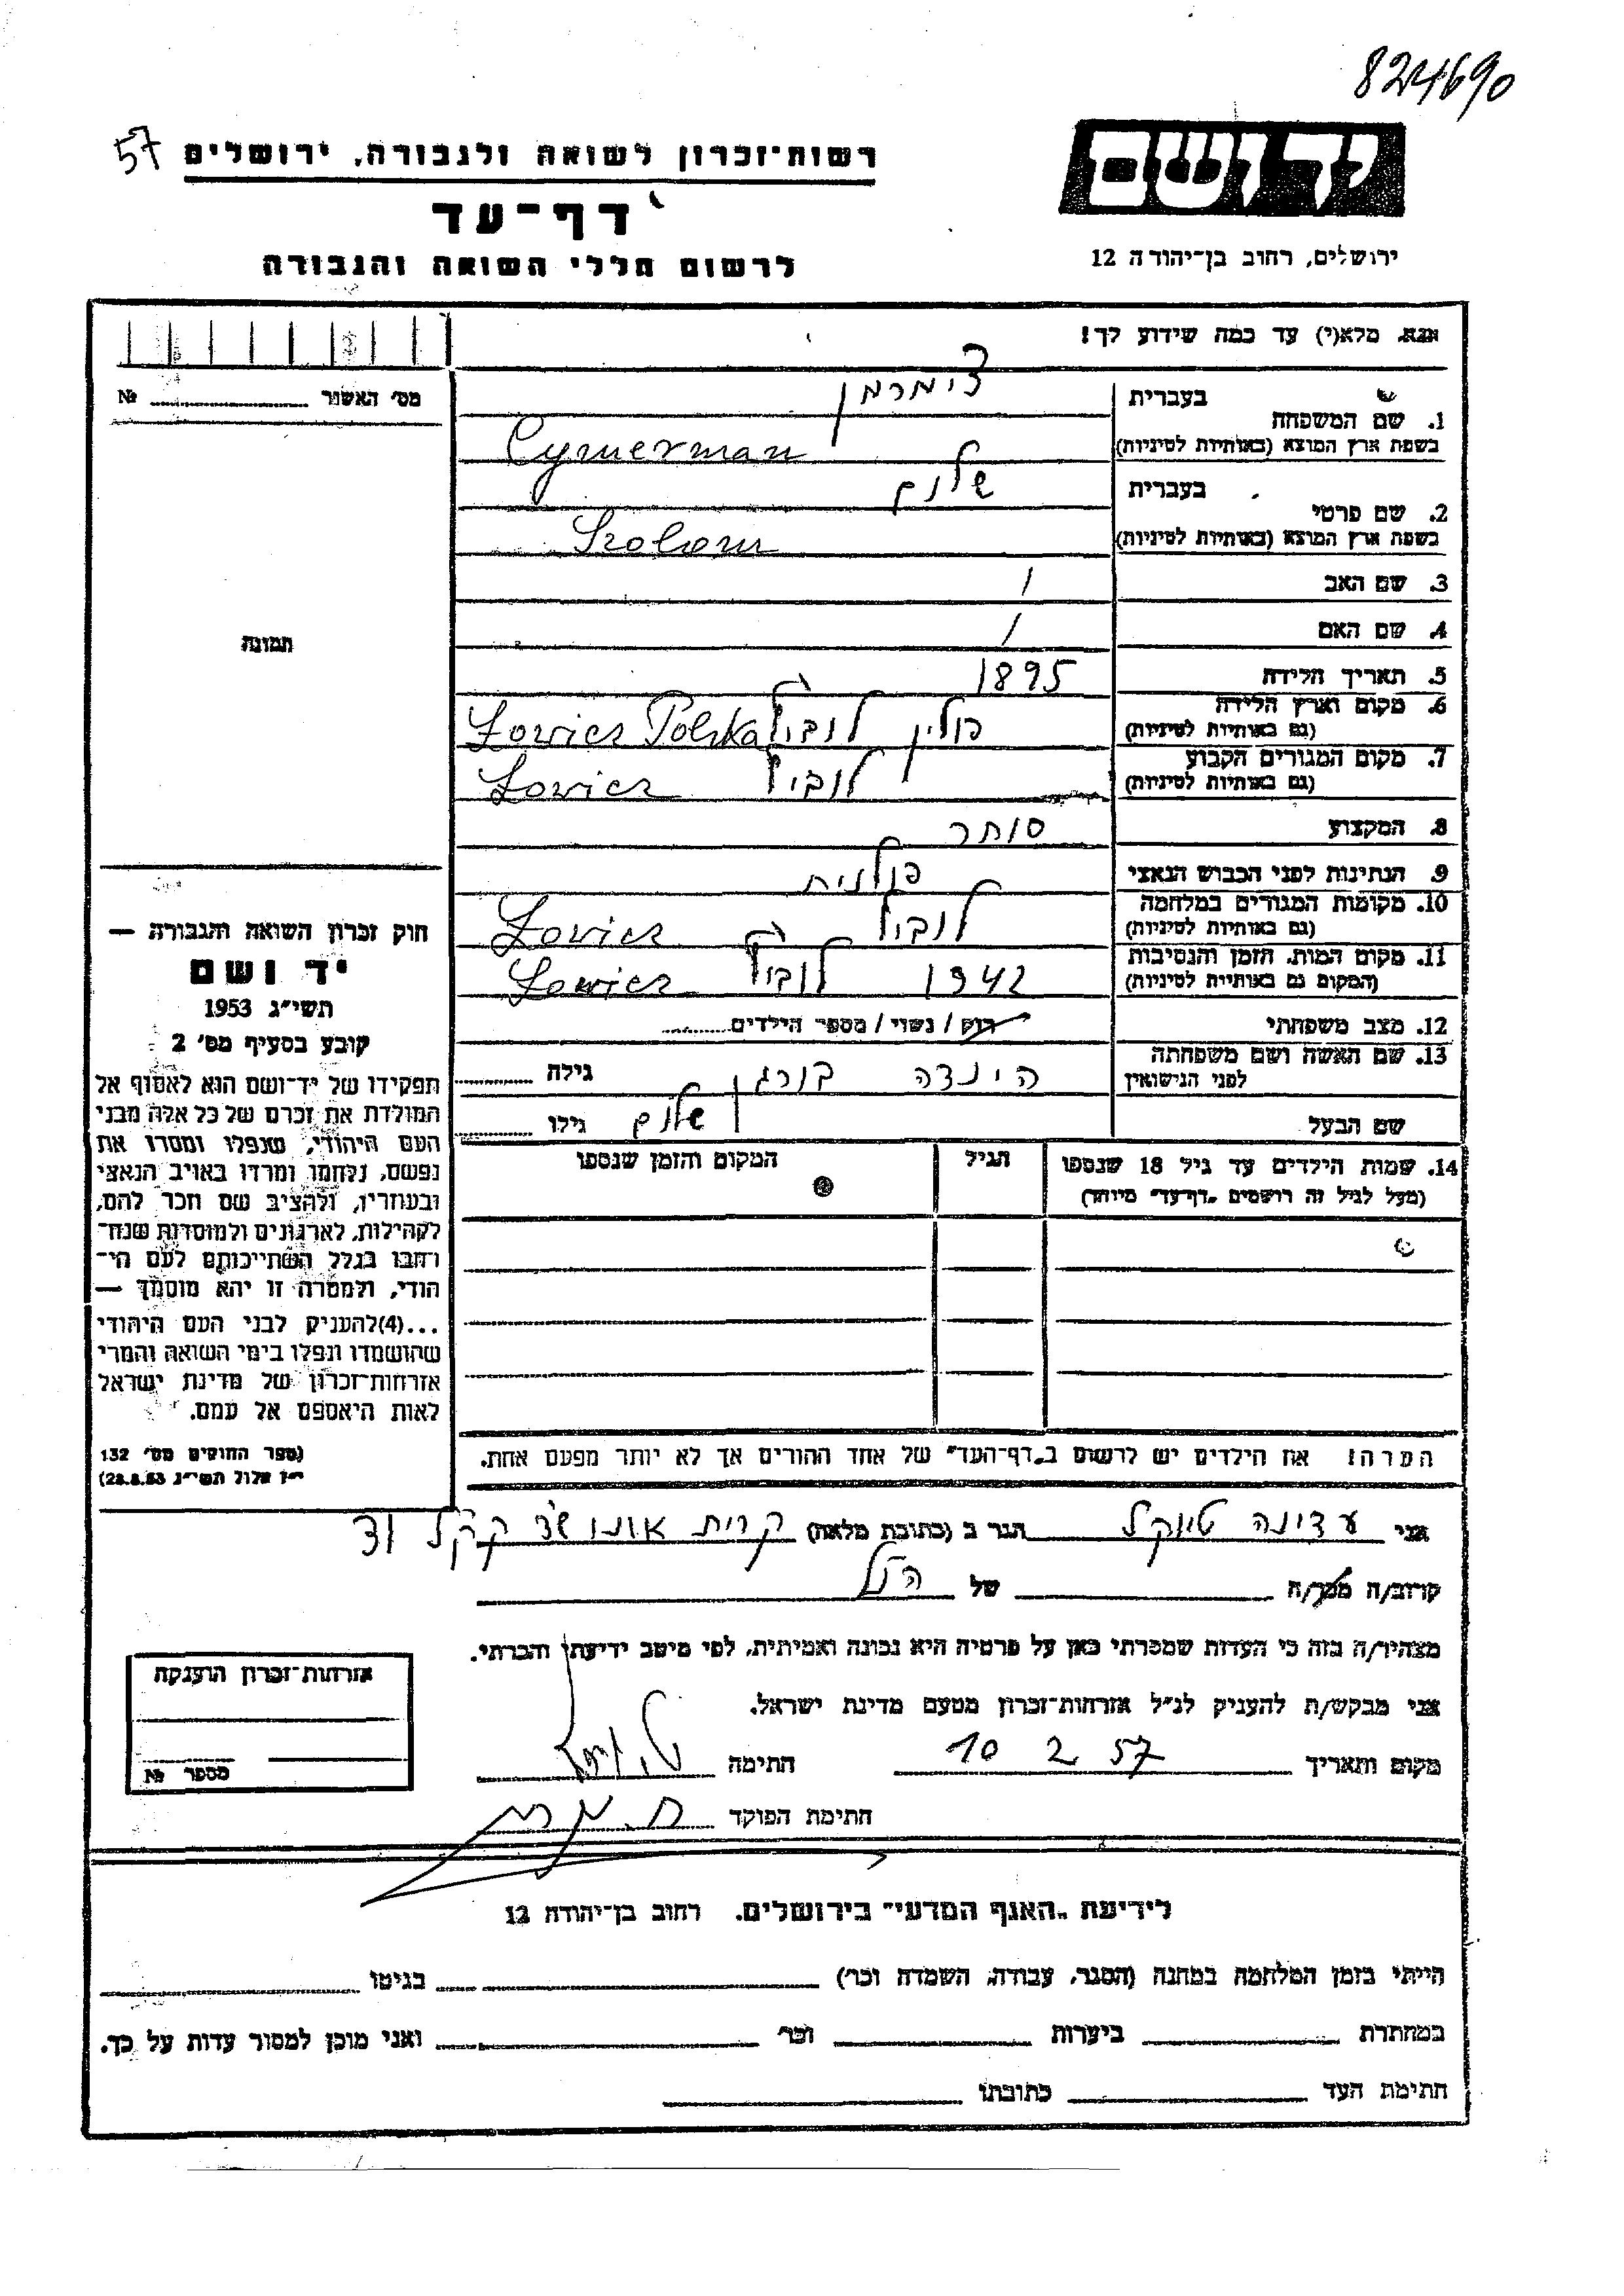 824690
57
רשות־זכרון לשואה ולגבורה, ירושלים
יד ושם
דף־עד
ירושלים, רחוב בן־יהודה 12
לרשום חללי השואה והגבורה
נא מלא(י) עד כמה שידוע לך!
מס' האשנר № 
1. שם המשפחה
בעברית צימרמן
בשפת ארץ המוצא (באותיות לטיניות) Cymerman
2. שם פרטי
בעברית שלום
בשפת ארץ המוצא (באותיות לטיניות) Szolom
3. שם האב /
4. שם האם /
5. תאריך הלידה 1895
6. מקום וארץ הלידה (גם באותיות לטיניות) פולין לוביץ' Łowicz Polska
7. מקום המגורים הקבוע (גם באותיות לטיניות) לוביץ Łowicz
8. המקצוע סוחר
9. הנתינות לפני הכבוש הנאצי פולנית
10. מקומות המגורים במלחמה (גם באותיות לטיניות) לוביץ Łowicz
11. מקום המות, הזמן והנסיבות (המקום גם באותיות לטיניות) 1942 לוביץ' Łowicz
12. מצב משפחתי רוק / נשוי / מספר הילדים
13. שם האשה ושם משפחתה לפני הנישואין הינדה בורגן גילה
שם הבעל שלום גילו
תמונה
14. שמות הילדים עד גיל 18 שנספו (מעל לגיל זה רושמים „דף־עד" מיוחד)
הגיל
המקום והזמן שנספו
הערה! את הילדים יש לרשום ב„דף־העד" של אחד ההורים אך לא יותר מפעם אחת.
חוק זכרון השואה והגבורה —
יד ושם
תשי"ג 1953
קובע בסעיף מס' 2
תפקידו של יד־ושם הוא לאסוף אל
המולדת את זכרם של כל אלה מבני
העם היהודי, שנפלו ומסרו את
נפשם, נלחמו ומרדו באויב הנאצי
ובעוזריו, ולהציב שם וזכר להם,
לקהילות, לארגונים ולמוסדות שנח־
רבו בגלל השתייכותם לעם הי־
הודי, ולמטרה זו יהא מוסמך —
...(4)להעניק לבני העם היהודי
שהושמדו ונפלו בימי השואה והמרי
אזרחות־זכרון של מדינת ישראל
לאות היאספם אל עמם.
(ספר החוקים מס' 132
י"ז אלול תשי"ג 28.8.53)
אני עדינה הגר ב (כתובת מלאה) קרית אונו
קרוב/ה מכר/ה של הנ"ל
מצהיר/ה בזה כי העדות שמסרתי כאן על פרטיה היא נכונה ואמיתית, לפי מיטב ידיעתי והכרתי.
אני מבקש/ת להעניק לנ"ל אזרחות־זכרון מטעם מדינת ישראל.
מקום ותאריך 10 2 57 חתימה
חתימת הפוקד
אזרחות־זכרון הוענקה
מספר №
לידיעת „האגף המדעי" בירושלים, רחוב בן־יהודה 12
הייתי בזמן המלחמה במחנה (הסגר, עבודה, השמדה וכו') בגיטו
במחתרת ביערות וכו' ואני מוכן למסור עדות על כך.
חתימת העד כתובתו